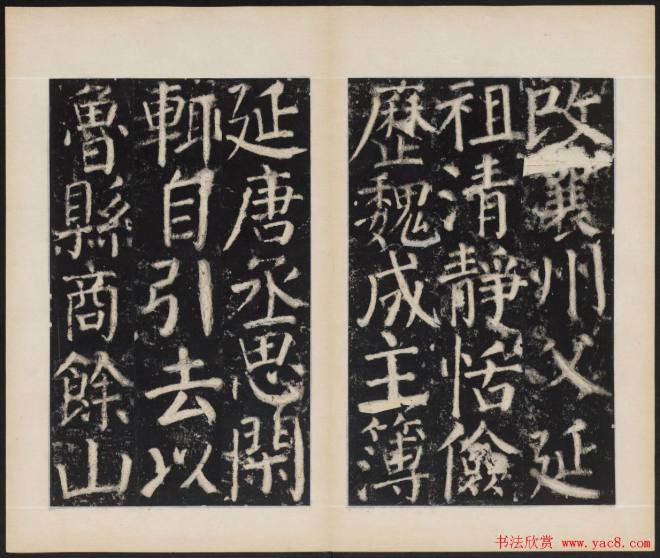 改襄州父延
祖清靜恬儉
歷魏成主簿
延唐丞思閑
輙自引去以
魯縣商餘山
书法欣赏 www.yac8.com